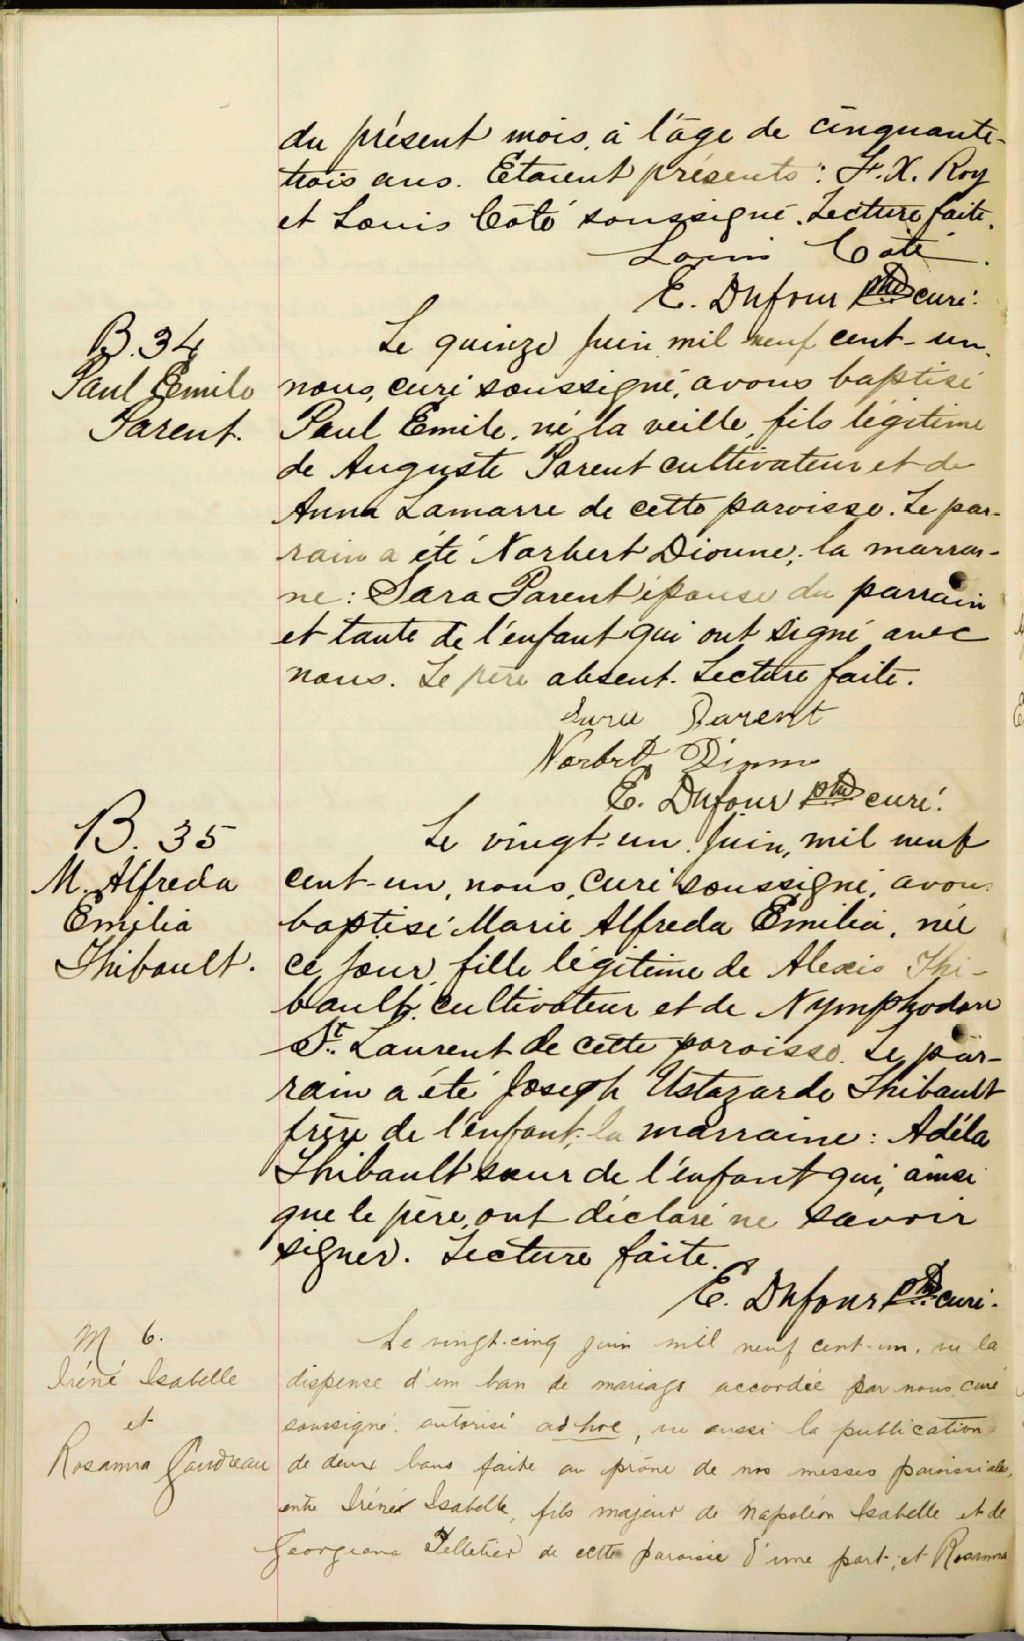 du présent mois, à l'âge de cinquante-
trois ans. Etaient présents : F. X. Roy
et Louis Côté soussigné. Lecture faite.
Louis Coté.
E. Dufour ptre curé.
B. 34
Paul Emile
Parent.
Le quinze Juin mil neuf cent-un,
nous, curé soussigné, avons baptisé
Paul Emile, né la veille, fils légitime
de Auguste Parent cultivateur et de
Anna Lamarre de cette paroisse. Le par-
rain a été Norbert Dionne; la marrai-
ne : Sara Parent épouse du parrain
et tante de l'enfant qui ont signé avec
nous. Le père absent. Lecture faite.
Sara Parent
Norbert Dionne
E. Dufour ptre curé.
B. 35
M. Alfreda
Emilia
Thibault.
Le vingt-un Juin, mil neuf
cent-un, nous, Curé soussigné, avons
baptisé Marie Alfreda Emilia, née
ce jour, fille légitime de Alexis Thi-
bault, cultivateur et de Nymphodore
St. Laurent de cette paroisse. Le par-
rain a été Joseph Ustazarde Thibault
frère de l'enfant; la marraine : Adéla
Thibault sœur de l'enfant qui, ainsi
que le père, ont déclaré ne savoir
signer. Lecture faite.
E. Dufour ptre curé.
M 6.
Iréné Isabelle
et
Rosanna Gaudreau
Le vingt-cinq juin mil neuf cent-un, vu la
dispense d'un ban de mariage accordée par nous curé
soussigné, autorisé ad hoc, vu aussi la publication
de deux bans faite au prône de nos messes paroissiales,
entre Iréné Isabelle, fils majeur de Napoléon Isabelle et de
Georgiana Pelletier de cette paroisse d'une part; et Rosanna